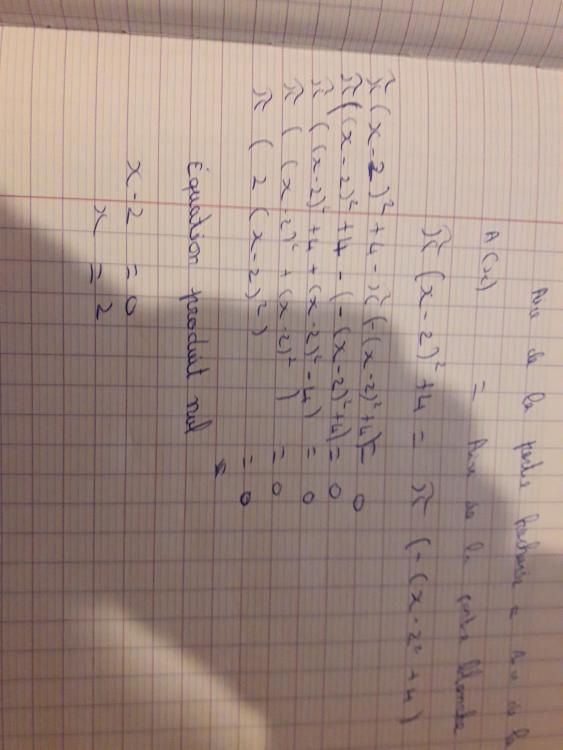 Aire de la partie hachurée = Aire de la
A(x) = Aire de la partie blanche
π (x-2)² + 4 = π (-(x-2² + 4)
π (x-2)² + 4 - π (-(x-2)² + 4) = 0
π ((x-2)² + 4 - (-(x-2)² + 4) = 0
π ((x-2)² + 4 + (x-2)² - 4) = 0
π ((x-2)² + (x-2)²) = 0
π (2 (x-2)²) = 0
Équation produit nul
x-2 = 0
x = 2